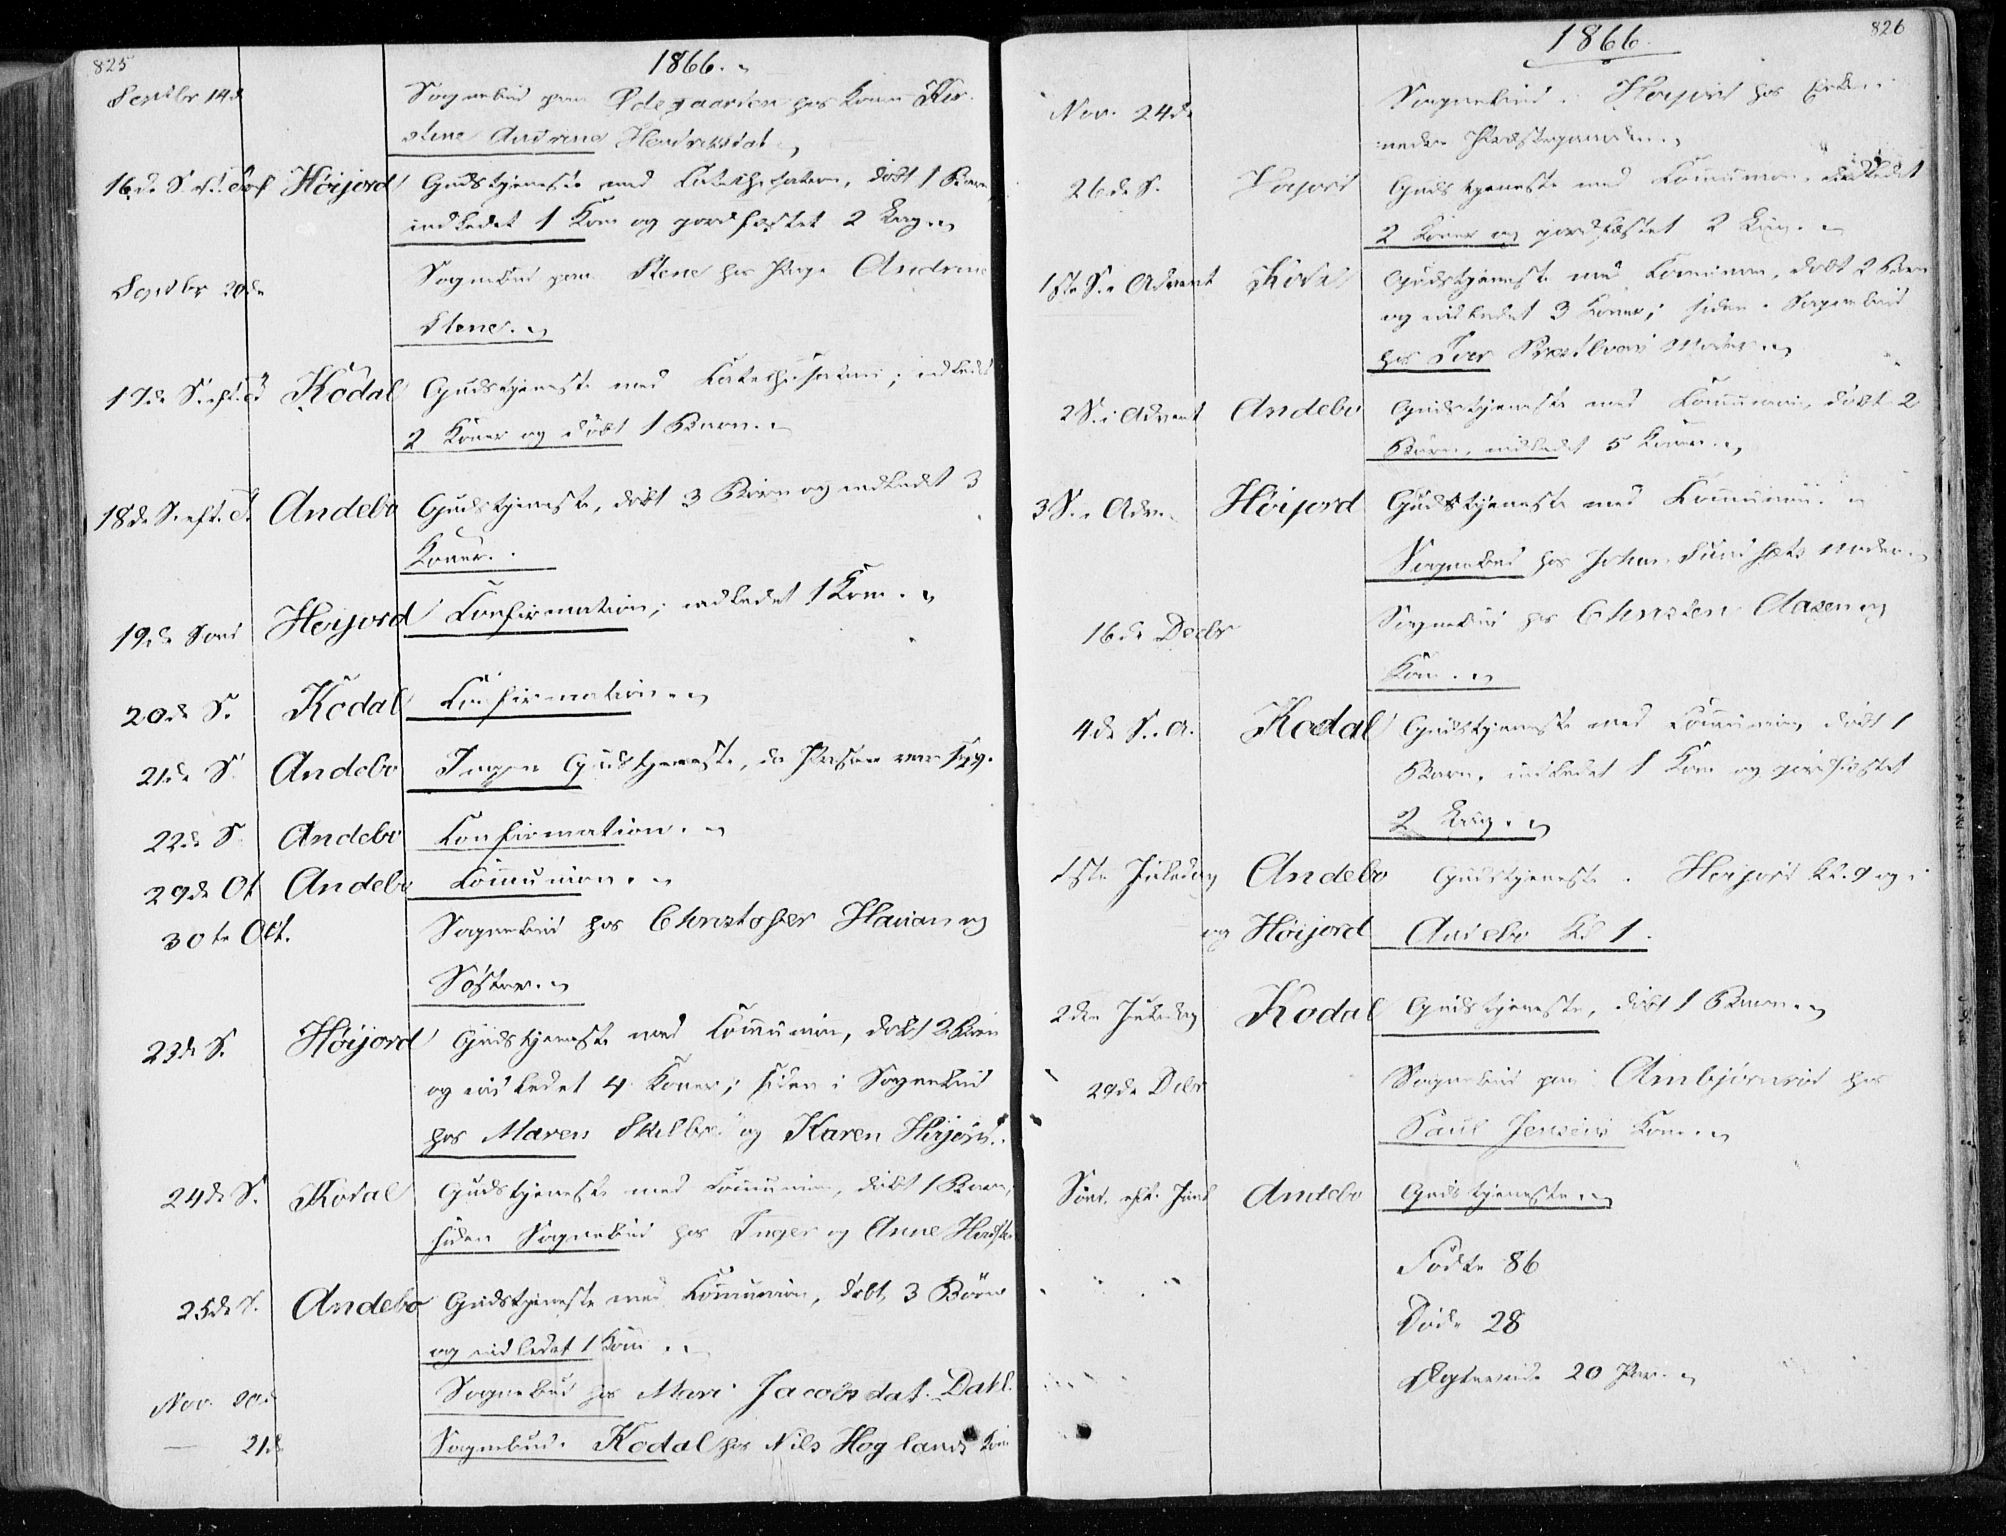 825
1866.
Septbr 14de
Sognebud paa Ødegaarden hos Konen Kir-
stine Andrine Hendriksdat.
16de S. ef. Tref Höijord Gudstjeneste med Catechisation, döbt 1 Barn,
indledet 1 Kone og jordfæstet 2 Lig.
Septbr 20de Sognebud paa Stene hos Pige Andrine
Stene.
17de S. eft. T Kodal Gudstjeneste med Catechisation; indledet
2 Koner og döbt 1 Barn.
18de S. eft. T. Andebo Gudstjeneste, döbt 3 Börn og indledet 3
Koner.
19de Sönd Höijord Confirmation; indledet 1 Kone.
20de S. Kodal Confirmation.
21de S. Andebo Ingen Gudstjeneste, da Præsten var syg.
22de S. Andebo Confirmation.
29de Oct Andebo Communion.
30te Oct. Sognebud hos Christopher
Söster.
23de S. Höijord Gudstjeneste med Communion, döbt 2 Börn
og indledet 4 Koner; siden i Sognebud
hos Maren og Karen
24de S. Kodal Gudstjeneste med Communion, döbt 1 Barn,
siden Sognebud hos Inger og Anne
25de S. Andebo Gudstjeneste med Communion, döbt 3 Börn
og indledet 1 Kone.
Nov. 20de Sognebud hos Mari Jacobsdat. Dahl.
— 21de Sognebud i Kodal hos Nils Hoglands Kone
826
1866.
Nov. 24de Sognebud i Höijord hos
under Præstegaarden.
26de S. Höijord Gudstjeneste med Communion, indledet
2 Koner og jordfæstet 2 Lig.
1ste S. i Advent Kodal Gudstjeneste med Communion, döbt 2 Börn
og indledet 3 Koner; siden i Sognebud
hos Iver Moder.
2 S. i Advent Andebo Gudstjeneste med Communion, döbt 2
Börn, indledet 5 Koner.
3 S. i Adv. Höijord Gudstjeneste med Communion.
Sognebud hos Johan Moder.
16de Decbr Sognebud hos Christen Aasen og
Kone.
4de S. i A. Kodal Gudstjeneste med Communion, döbt 1
Barn, indledet 1 Kone og jordfæstet
2 Lig.
1ste Juledag Andebo Gudstjeneste i Höijord kl. 9 og i
og Höijord Andebo Kl 1.
2den Juledag Kodal Gudstjeneste, döbt 1 Barn.
29de Decbr Sognebud paa Ambjörnröd hos
Paul Jensens Kone.
Sönd. eft. Juul Andebo Gudstjeneste.
Födte 86
Döde 28
Ægteviede 20 Par.